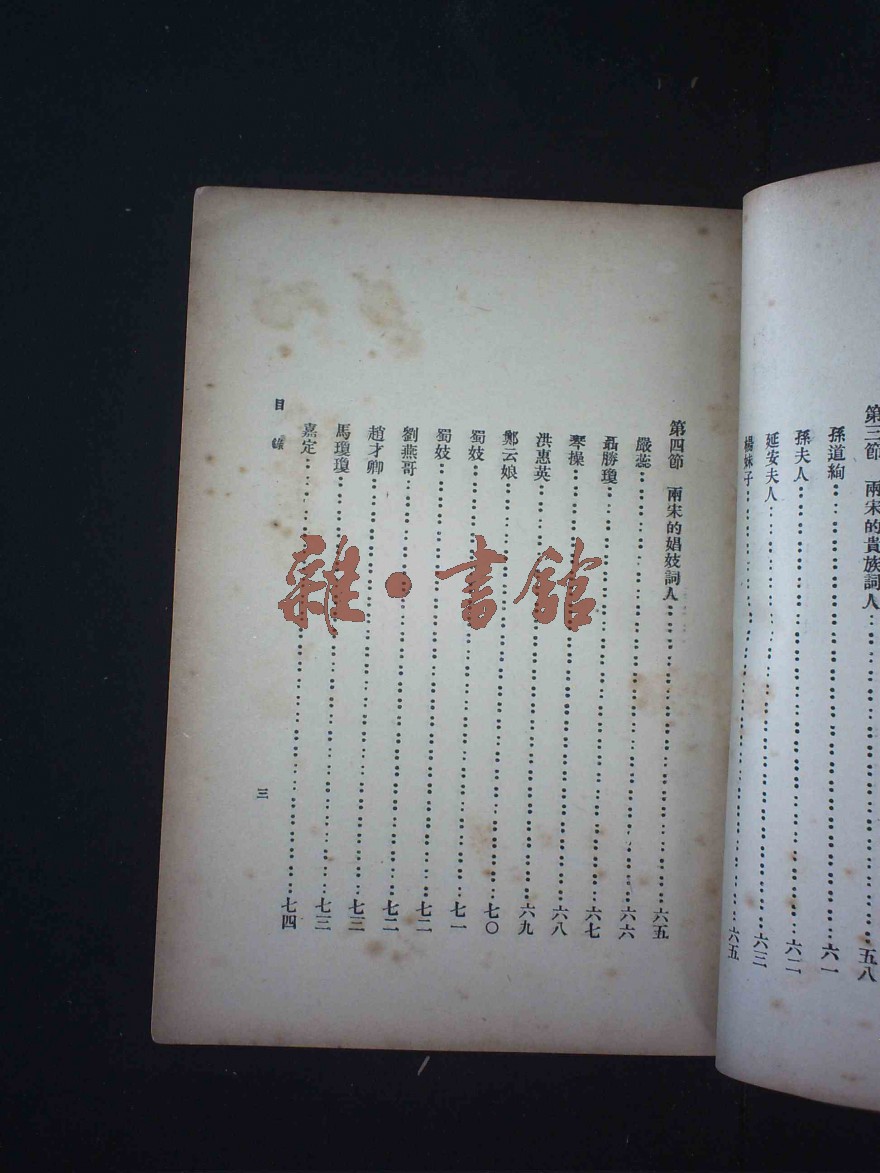 第三節　兩宋的貴族詞人……五八
孫道絢……六一
孫夫人……六二
延安夫人……六三
楊妹子……六五
第四節　兩宋的娼妓詞人……六五
嚴蕊……六六
聶勝瓊……六七
琴操……六八
洪惠英……六九
鄭云娘……七〇
蜀妓……七一
蜀妓……七二
劉燕哥……七二
趙才卿……七三
馬瓊瓊……七三
嘉定……七四
目錄
三
雜·書館